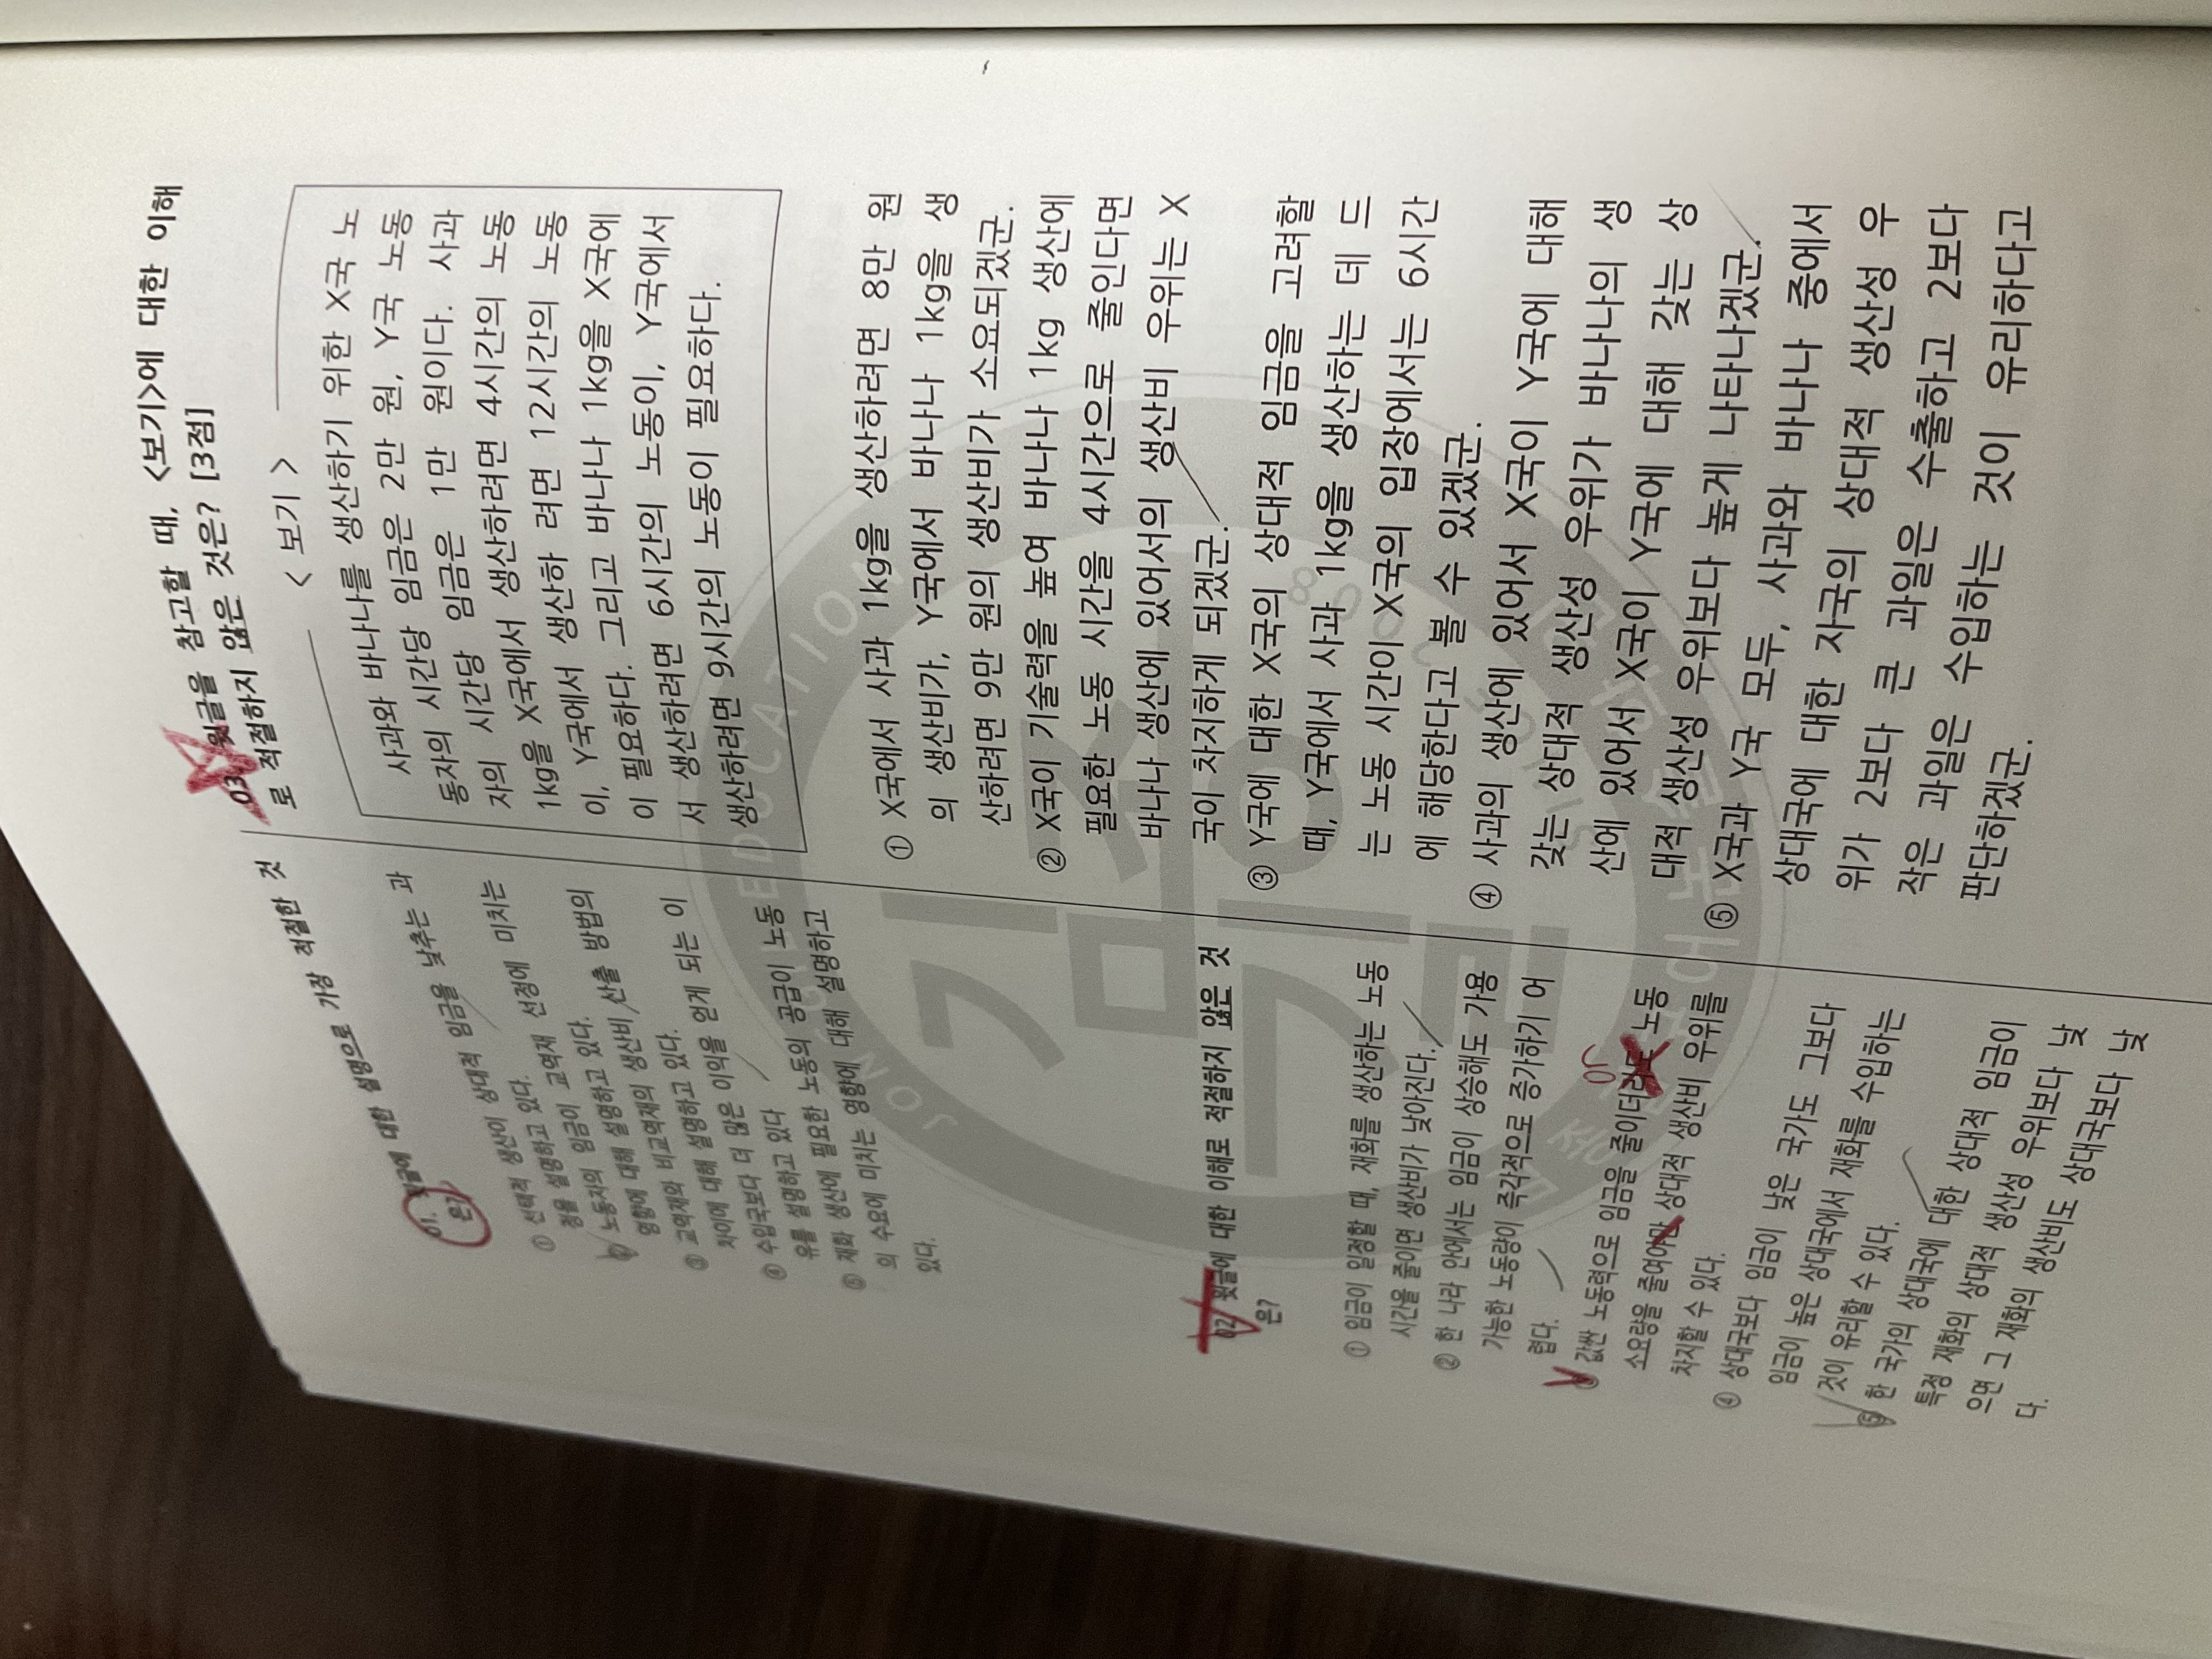 01. 윗글에 대한 설명으로 가장 적절한 것
은?
① 선택적 생산이 상대적 임금을 낮추는 과
정을 설명하고 있다.
② 노동자의 임금이 교역재 선정에 미치는
영향에 대해 설명하고 있다.
③ 교역재와 비교역재의 생산비 산출 방법의
차이에 대해 설명하고 있다.
④ 수입국보다 더 많은 이익을 얻게 되는 이
유를 설명하고 있다
⑤ 재화 생산에 필요한 노동의 공급이 노동
의 수요에 미치는 영향에 대해 설명하고
있다.
02. 윗글에 대한 이해로 적절하지 않은 것
은?
① 임금이 일정할 때, 재화를 생산하는 노동
시간을 줄이면 생산비가 낮아진다.
② 한 나라 안에서는 임금이 상승해도 가용
가능한 노동량이 즉각적으로 증가하기 어
렵다.
or
③ 값싼 노동력으로 임금을 줄이더라도 노동
소요량을 줄여야만 상대적 생산비 우위를
차지할 수 있다.
④ 상대국보다 임금이 낮은 국가도 그보다
임금이 높은 상대국에서 재화를 수입하는
것이 유리할 수 있다.
⑤ 한 국가의 상대국에 대한 상대적 임금이
특정 재화의 상대적 생산성 우위보다 낮
으면 그 재화의 생산비도 상대국보다 낮
다.
03. 윗글을 참고할 때, <보기>에 대한 이해
로 적절하지 않은 것은? [3점]
< 보기 >
사과와 바나나를 생산하기 위한 X국 노
동자의 시간당 임금은 2만 원, Y국 노동
자의 시간당 임금은 1만 원이다. 사과
1kg을 X국에서 생산하려면 4시간의 노동
이, Y국에서 생산하 려면 12시간의 노동
이 필요하다. 그리고 바나나 1kg을 X국에
서 생산하려면 6시간의 노동이, Y국에서
생산하려면 9시간의 노동이 필요하다.
① X국에서 사과 1kg을 생산하려면 8만 원
의 생산비가, Y국에서 바나나 1kg을 생
산하려면 9만 원의 생산비가 소요되겠군.
② X국이 기술력을 높여 바나나 1kg 생산에
필요한 노동 시간을 4시간으로 줄인다면
바나나 생산에 있어서의 생산비 우위는 X
국이 차지하게 되겠군.
③ Y국에 대한 X국의 상대적 임금을 고려할
때, Y국에서 사과 1kg을 생산하는 데 드
는 노동 시간이 X국의 입장에서는 6시간
에 해당한다고 볼 수 있겠군.
④ 사과의 생산에 있어서 X국이 Y국에 대해
갖는 상대적 생산성 우위가 바나나의 생
산에 있어서 X국이 Y국에 대해 갖는 상
대적 생산성 우위보다 높게 나타나겠군.
⑤ X국과 Y국 모두, 사과와 바나나 중에서
상대국에 대한 자국의 상대적 생산성 우
위가 2보다 큰 과일은 수출하고 2보다
작은 과일은 수입하는 것이 유리하다고
판단하겠군.